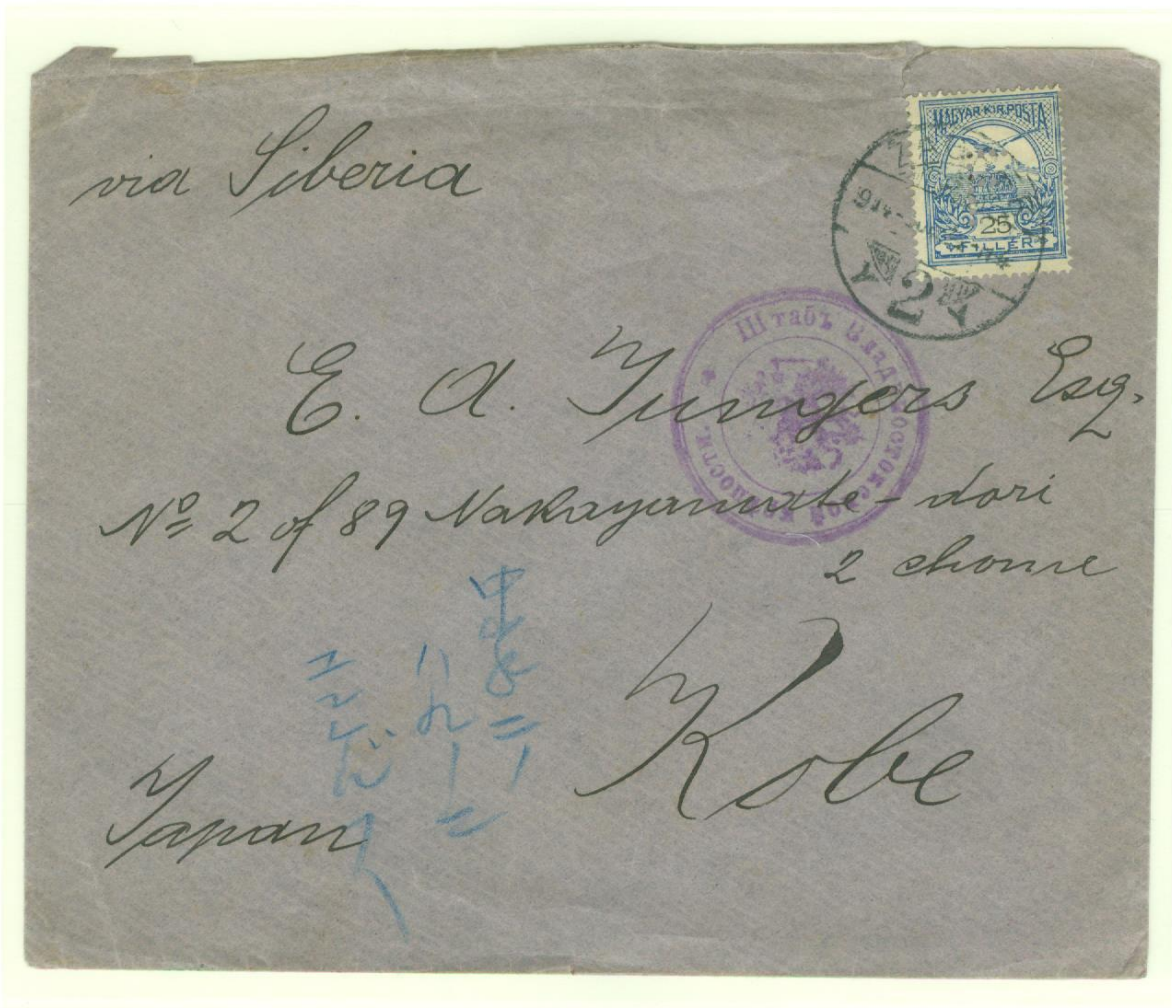 via Siberia
MAGYAR KIR. POSTA
25
FILLÉR
914
2
Штабъ Владивостокской крѣпости.
E. A. Jungers Esq.
No 2 of 89 Nakayamate-dori
2 chome
Kobe
Japan
中山二ノ
八九ノ二